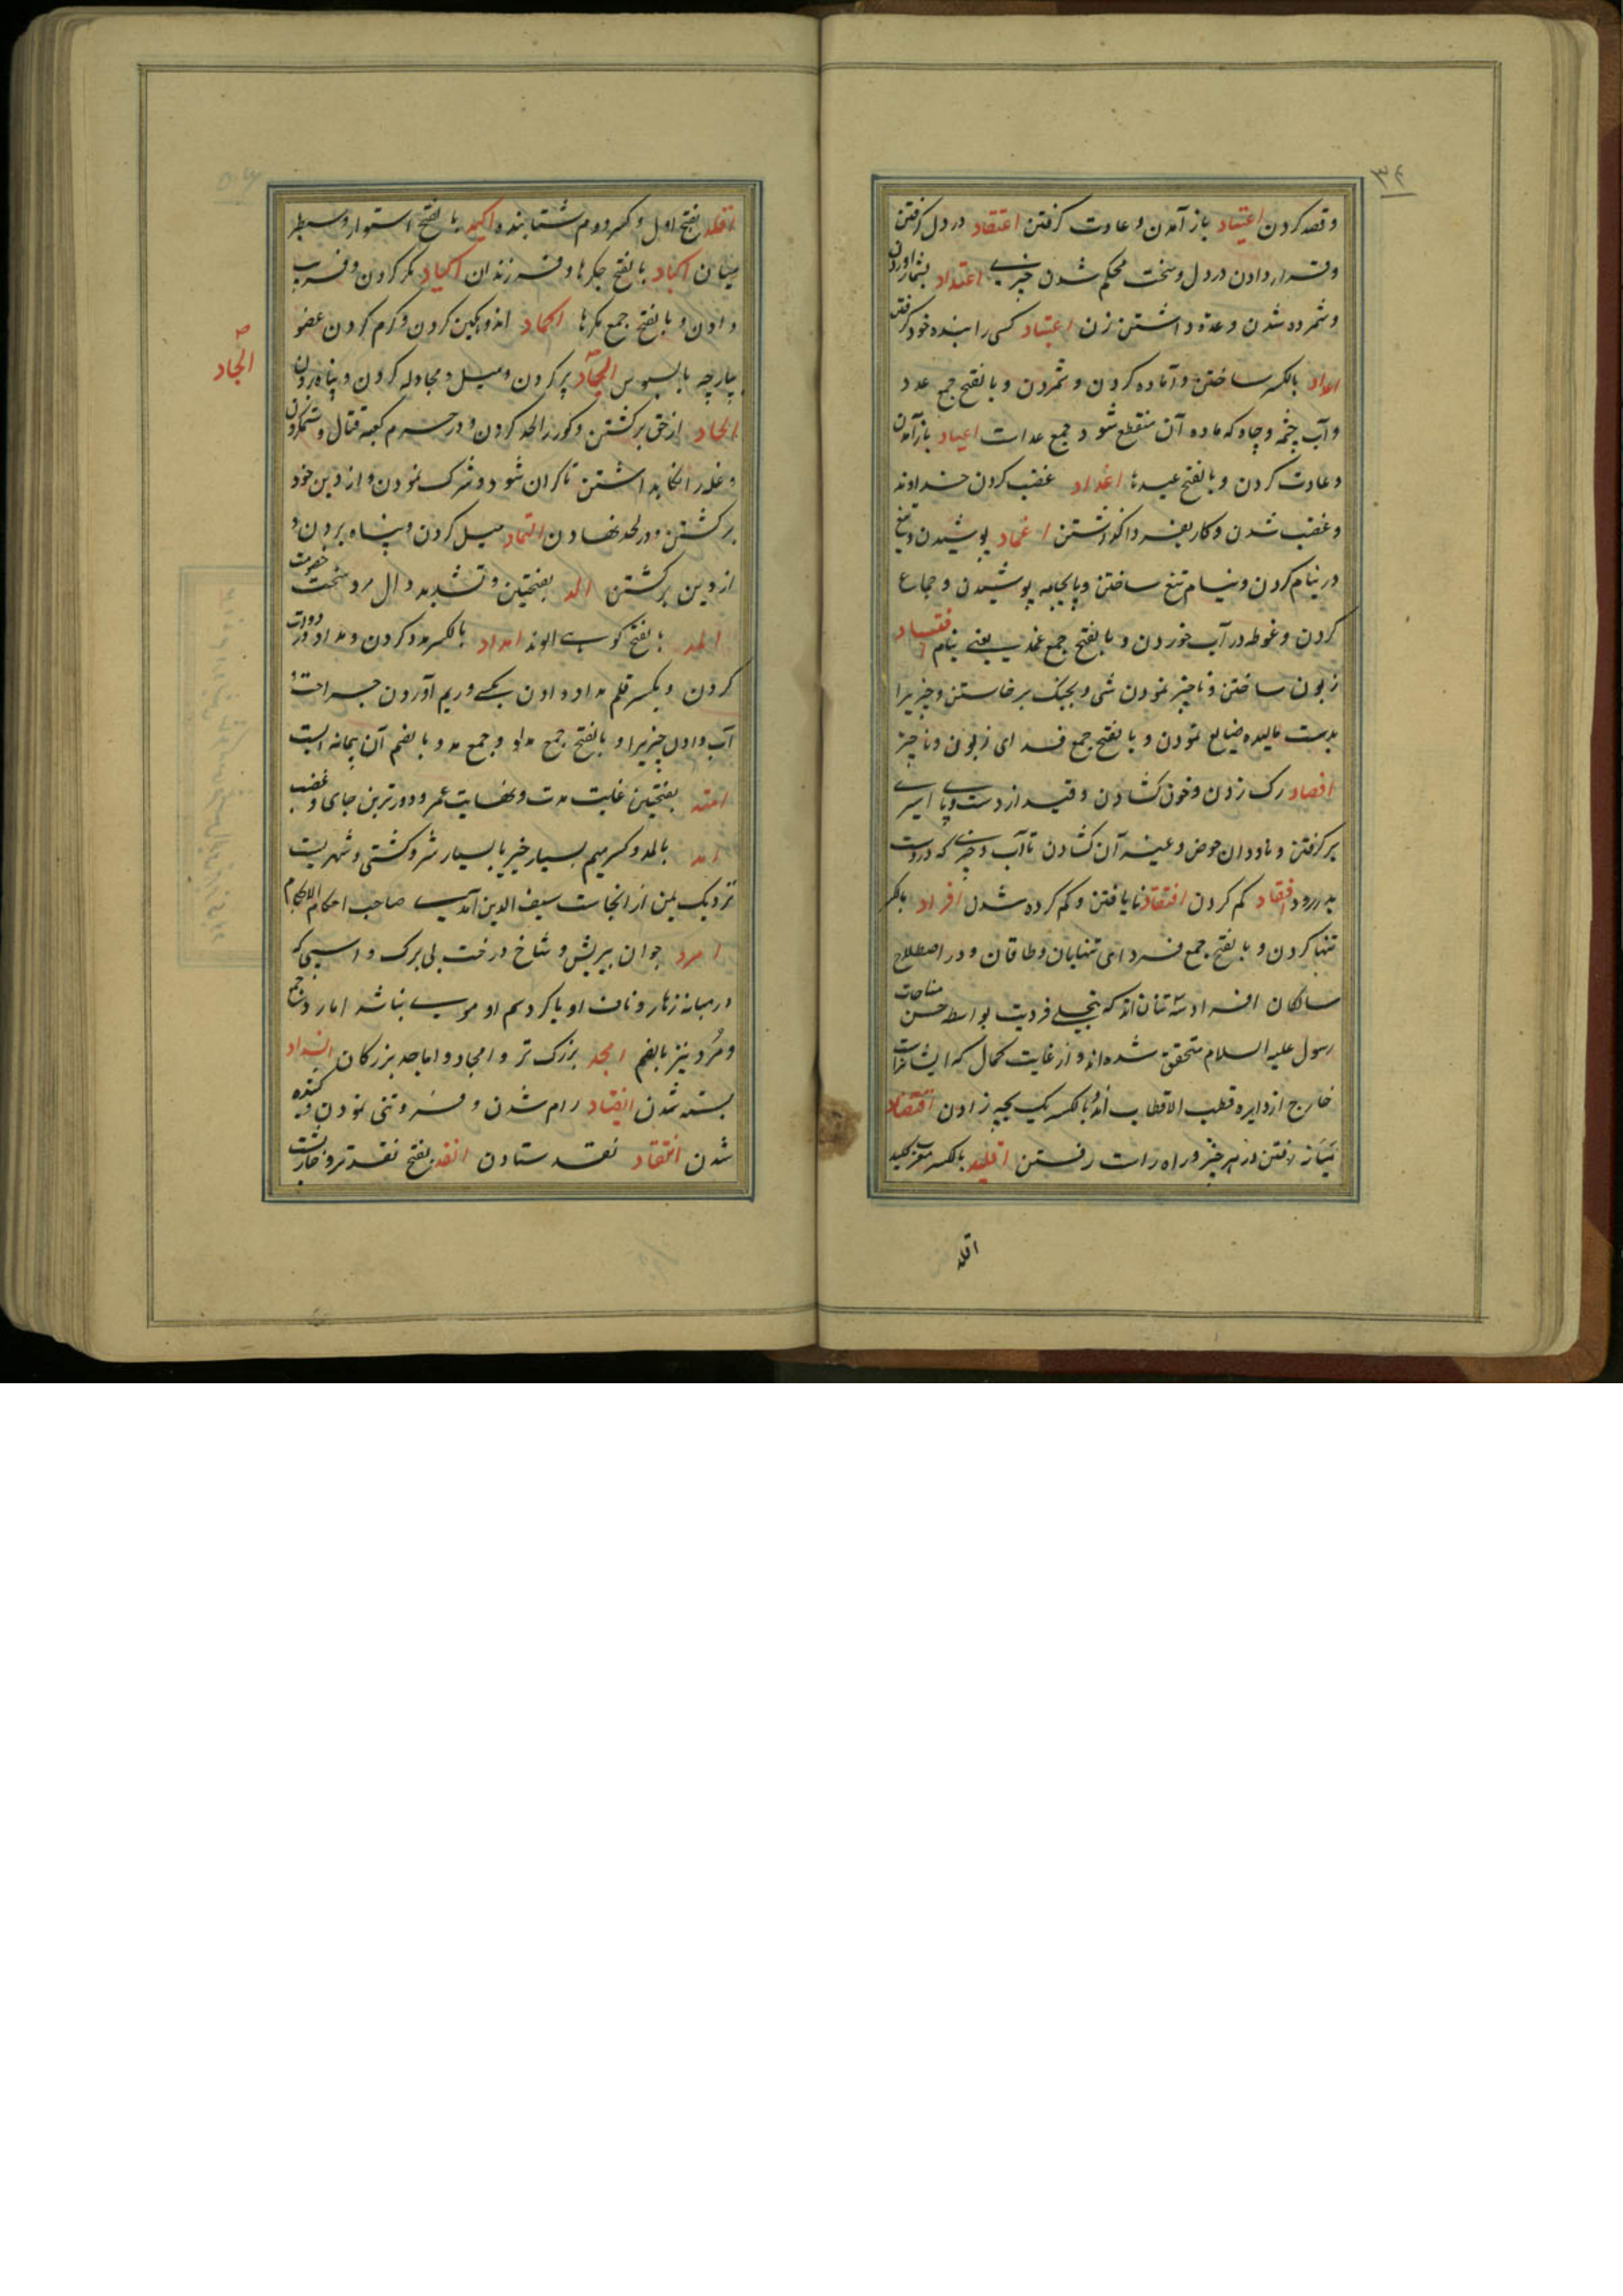 ۳۲
وقصد کردن اعتیاد باز آمدن و عادت گرفتن اعتقاد در دل گرفتن
وقرار دادن در دل وسخت محکم شدن چیزی اعتداد بشمار آوردن
وشمرده شدن وعدّه داشتن زن اعتباد کسی را بنده خود گرفتن
اعداد بالکسر ساختن وآماده کردن وشمردن وبالفتح جمع عدد
وآب چشمه وچاه که ماده آن منقطع شود جمع عدات اعیاد بازآمدن
وعادت کردن وبالفتح عیدها اغداد غضب کردن خداوند
وغضب شدن وکار بفردا گذاشتن اغماد پوشیدن وتیغ
در نیام کردن ونیام تیغ ساختن وپایجامه پوشیدن وجماع
کردن وغوطه در آب خوردن وبالفتح جمع غمد یعنی نیام افساد
زبون ساختن وناچیز نمودن شی وبجنگ برخاستن وچیزیرا
بدست مالیده ضایع نمودن وبالفتح جمع فسد ای زبون وناچیز
افصاد رک زدن وخون کشادن وقید از دست وپای اسیری
برگرفتن وناودان حوض وغیره آن کشادن تا آب وچیزی که دروست
بدررود افقاد کم کردن افتقاد نایافتن وکم کرده شدن افراد بالکسر
تنها کردن وبالفتح جمع فرد ای تنهایان وطاقان ودر اصطلاح
سالکان افراد سه تنان اند که بتجلی فردیت بواسطه حسن متابعت
رسول علیه السلام متحقق شده اند واز غایت کمال که ایشانراست
خارج از دایره قطب الاقطاب اند وبالکسر یک بچه زادن اقتصاد
میانه رفتن در هر چیز وراه راست رفتن اقلید بالکسر معرب کلید
اقلد
اقلد بفتح اول وکسر دوم شتابنده اکید بالفتح استوار وسطبر
میان اکباد بالفتح جکرها وفرزندان اکیاد مکر کردن وفریب
دادن وبالفتح جمع مکرها اکماد اندوهگین کردن وگرم کردن عضو
بپارچه یا بسبوس الجاد پر کردن ومیل ومجادله کردن وپناه بردن
الجاد
الحاد از حق برگشتن وگور را لحد کردن ودر حرم کعبه قتال وستم کردن
وغله را نگاه داشتن تا گران شود وشرک نمودن واز دین خود
برگشتن ودر لحد نهادن التحاد میل کردن وپناه بردن و
از دین برگشتن الد بفتحتین وتشدید دال مرد سخت خصومت
الد بالفتح کوهی الوند امداد بالکسر مدد کردن ومداد در دوات
کردن وبکسر قلم مداد دادن بکسی وریم آوردن جراحت و
آب دادن چیزیرا وبالفتح جمع مداد وجمع مد وبالضم آن پیمانه است
امد بفتحتین غایت مدت ونهایت عمر ودورترین جای وغضب
امد بالمد وکسر میم بسیار خیر یا بسیار شر وکشتی وشهریست
نزدیک یمن از انجاست سیف الدین آمدی صاحب احکام الاحکام
امرد جوان بیریش وشاخ درخت بی برک واسپی که
درمیانه زهار وناف او یا گرد سم او مویی نباشد امارد جمع
ومُرد نیز بالضم امجد بزرگ تر وامجاد واماجد بزرگان انسداد
بسته شدن انقیاد رام شدن وفروتنی نمودن وکشیده
شدن انتقاد نقد ستادن انقد بفتح نقدتر وخارپشت